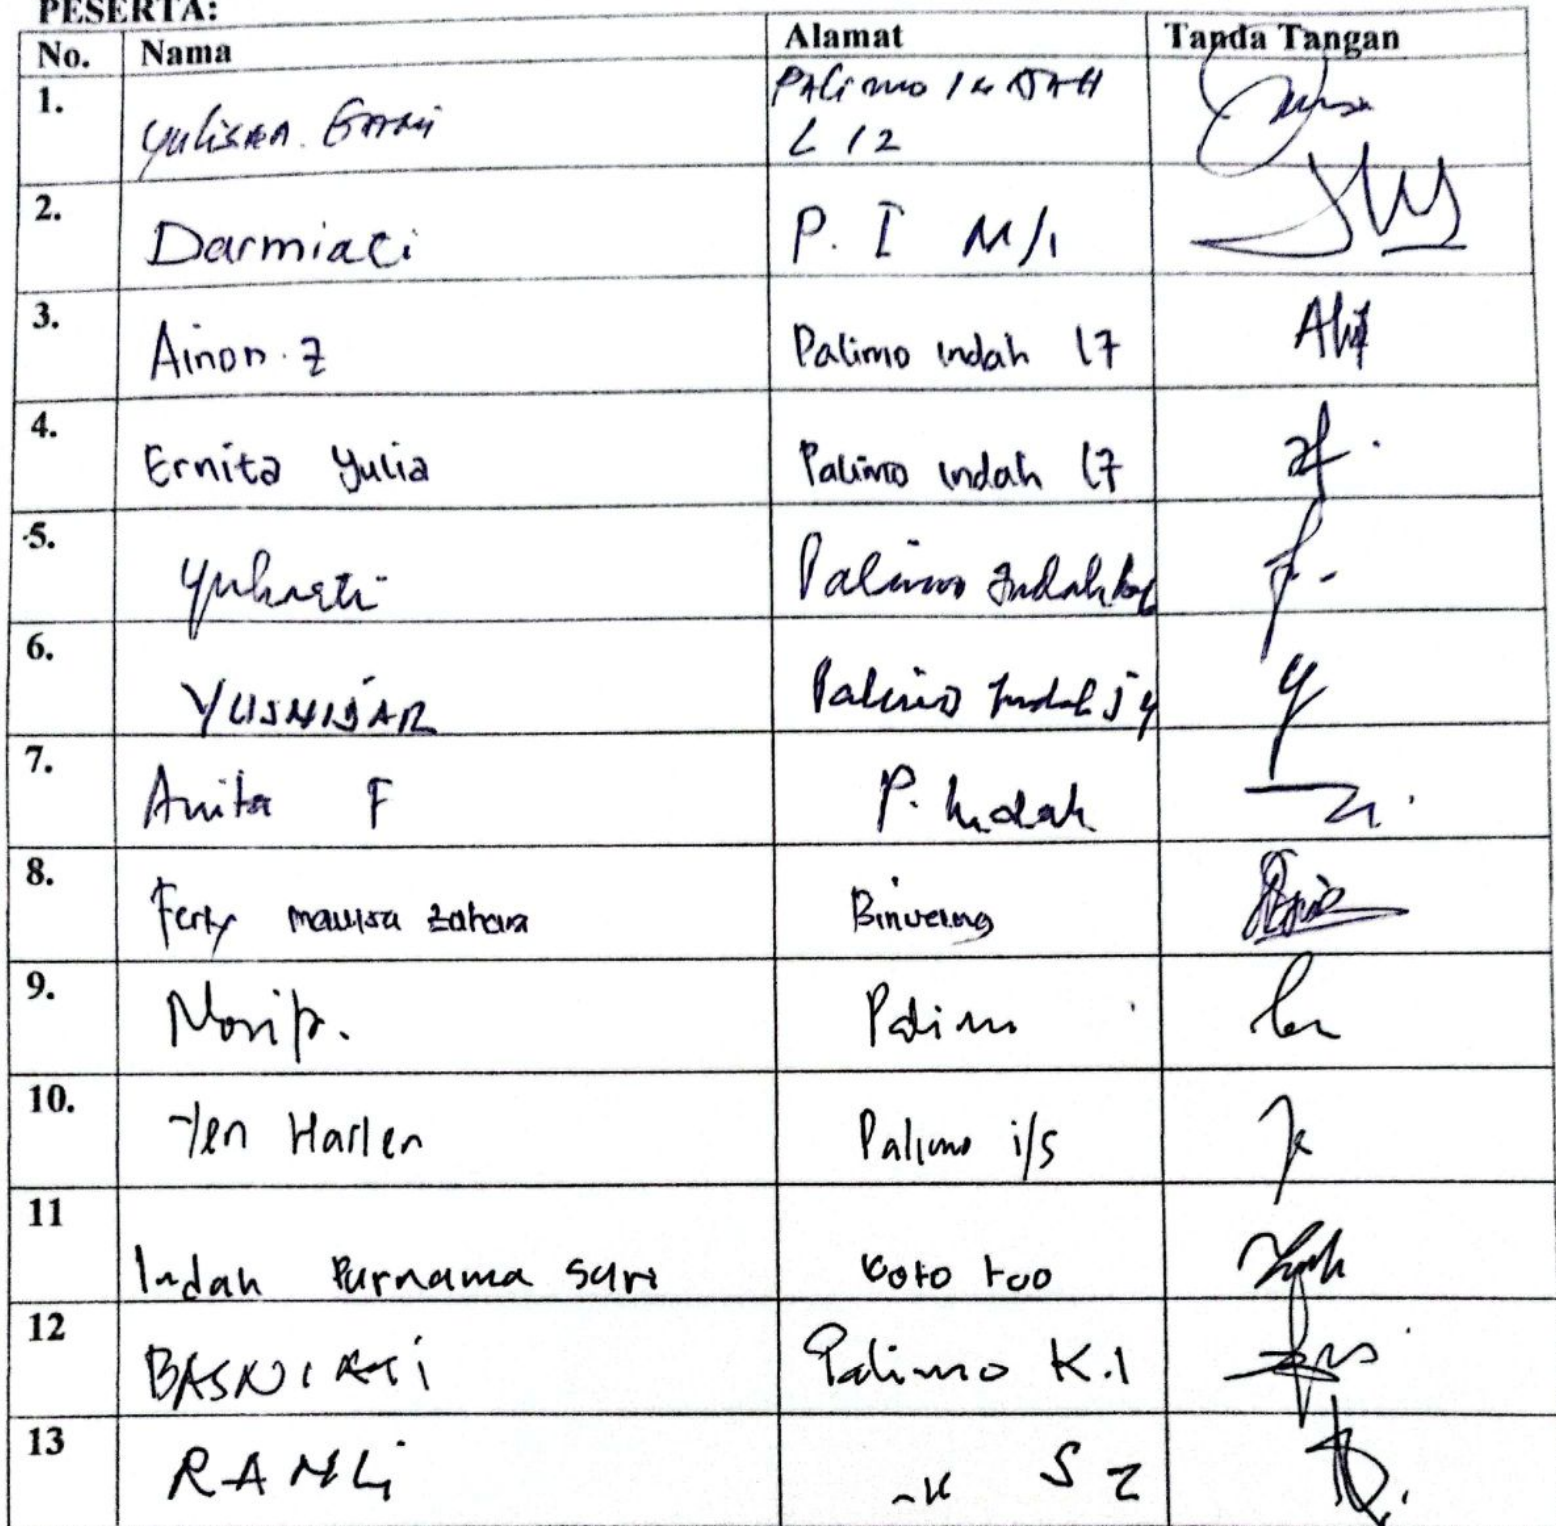 PESERTA:
No. Nama Alamat Tanda Tangan
1. Palimo INDAH
L 12
2. Darmiaci P. I M/1
3. Ainon. Z Palimo indah L7
4. Ernita Yulia Palimo indah L7
5. Yuliasti Palimo Indah
6. YUSNIDAR Palimo Indah J4
7. Anita F P. Indah
8. Ferty maulisa zahara Binuang
9. Palimo
10. Yen Harlen Palimo i/5
11 Indah Purnama Sari Koto too
12 BASNIATI Palimo K.1
13 RAMLi S 2